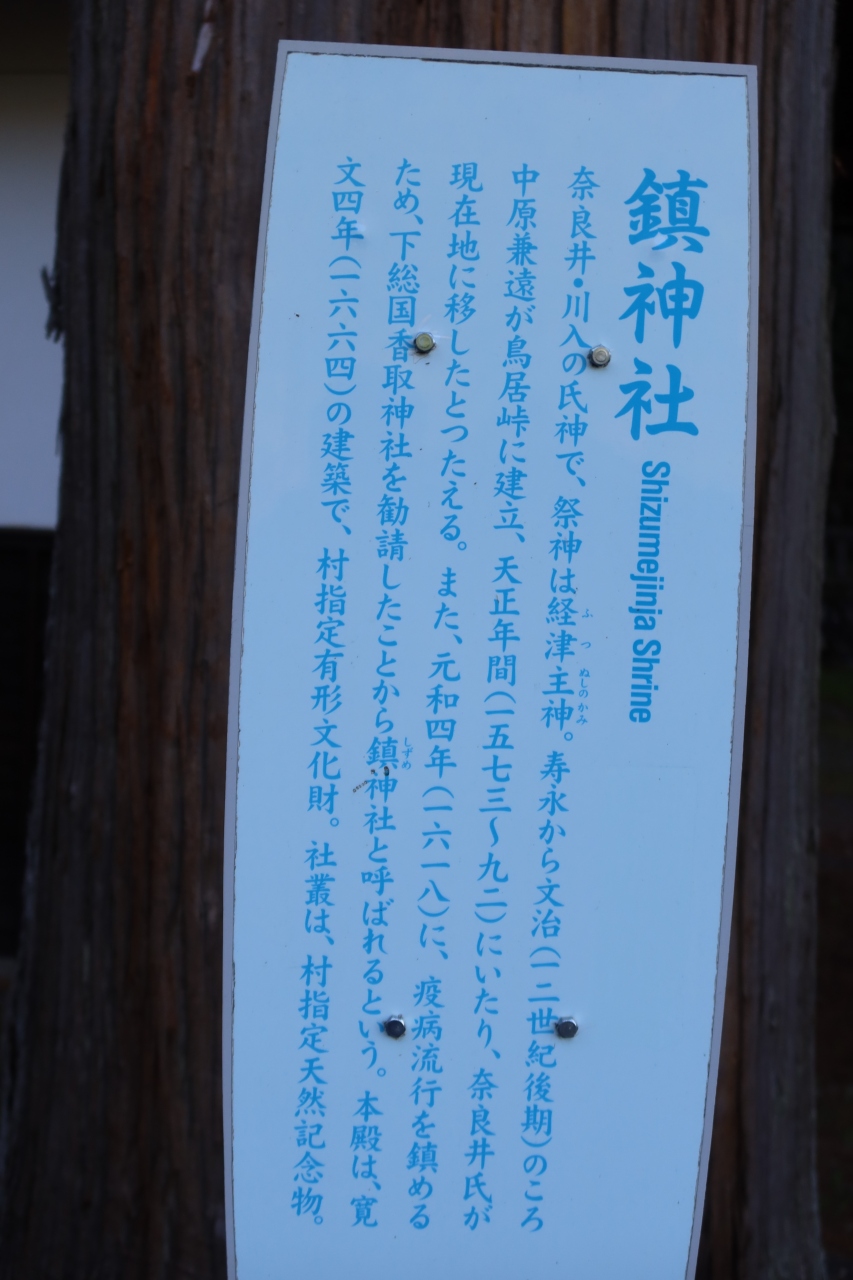 鎮神社 Shizumejinja Shrine
奈良井・川入の氏神で、祭神は経津主神。寿永から文治(一二世紀後期)のころ
ふつぬしのかみ
中原兼遠が鳥居峠に建立、天正年間(一五七三〜九二)にいたり、奈良井氏が
現在地に移したとつたえる。また、元和四年(一六一八)に、疫病流行を鎮める
ため、下総国香取神社を勧請したことから鎮神社と呼ばれるという。本殿は、寛
しずめ
文四年(一六六四)の建築で、村指定有形文化財。社叢は、村指定天然記念物。